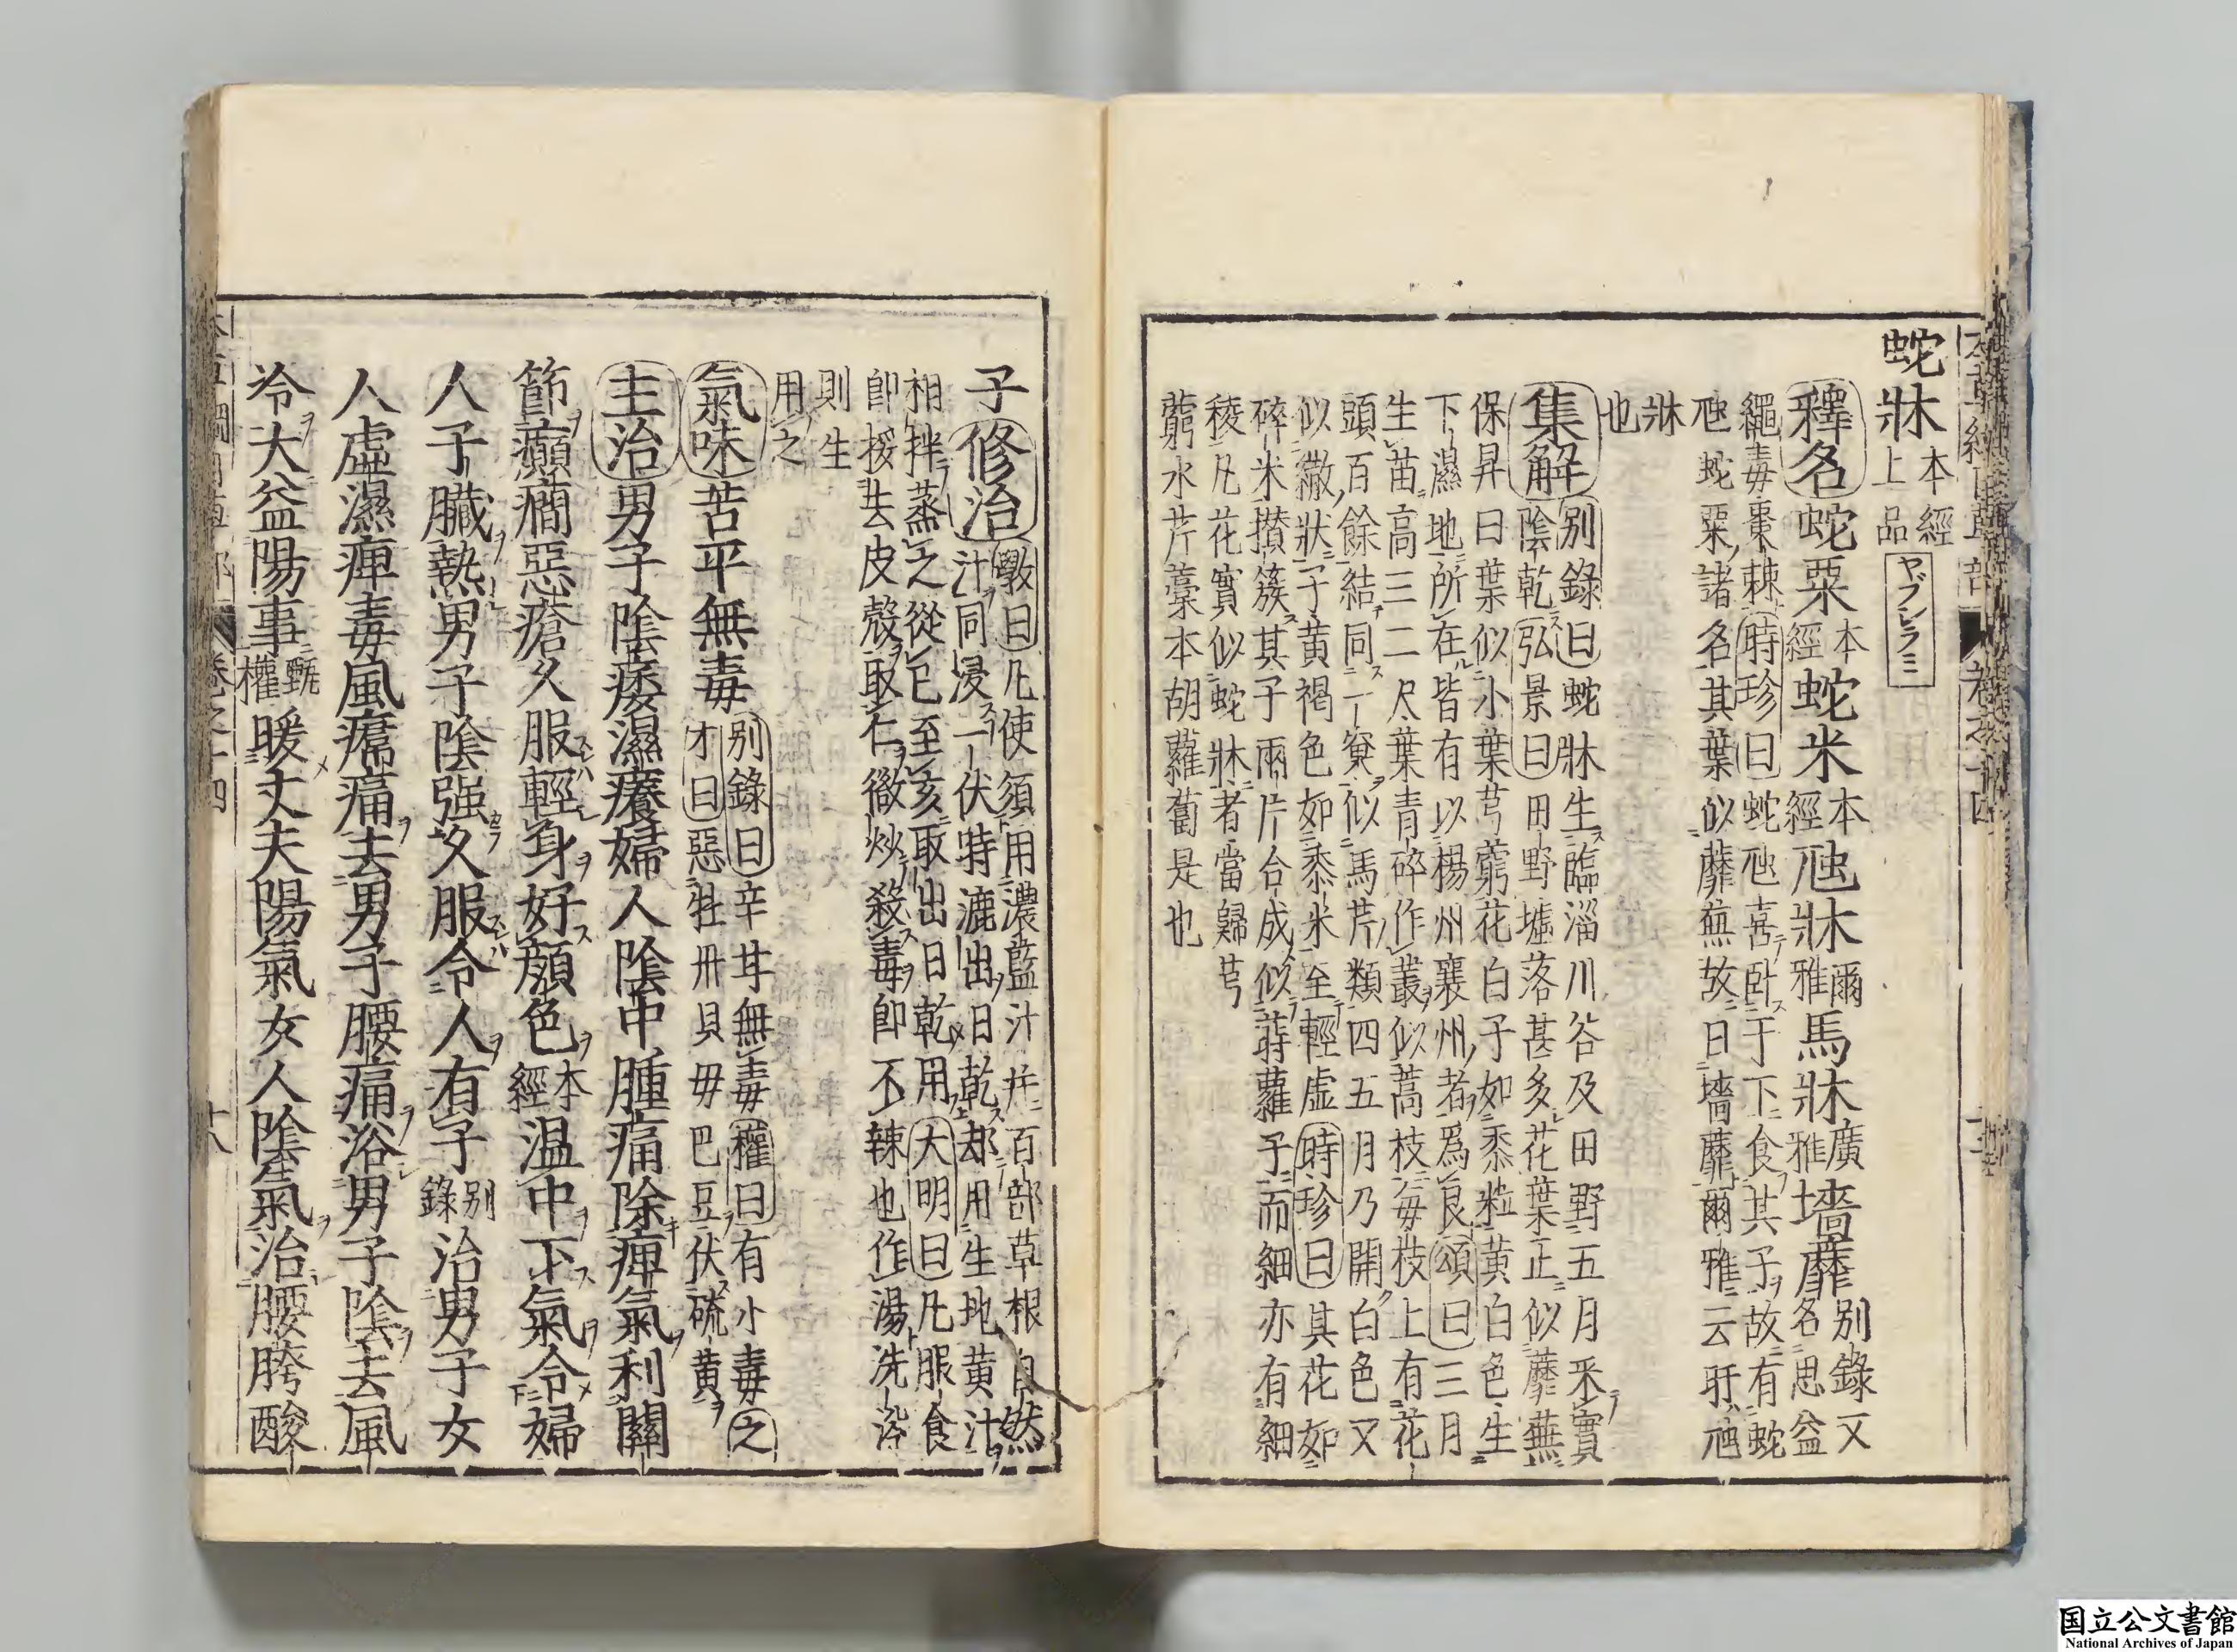 蛇牀 本經上品 ヤブシラミ
釋名 蛇粟 本經 蛇米 本經 虺牀 爾雅 馬牀 廣雅 墻蘼 別錄又名思益
繩毒棗棘時珍曰蛇虺喜卧于下食其子故有蛇
虺蛇粟諸名其葉似蘼蕪故曰墻蘼爾雅云盱虺
牀
也
集解 別錄曰蛇牀生臨淄川谷及田野五月采實
陰乾弘景曰田野墟落甚多花葉正似蘼蕪
保昇曰葉似小葉芎藭花白子如黍粒黃白色生
下濕地所在皆有以楊州襄州者爲良頌曰三月
生苗高三二尺葉青碎作叢似蒿枝每枝上有花
頭百餘結同一窠似馬芹類四五月乃開白色又
似繖狀子黃褐色如黍米至輕虛時珍曰其花如
碎米攅簇其子兩片合成似蒔蘿子而細亦有細
稜凡花實似蛇牀者當歸芎
藭水芹藁本胡蘿蔔是也
子 修治 斅曰凡使須用濃藍汁并百部草根自然
汁同浸一伏時漉出日乾却用生地黃汁
相拌蒸之從巳至亥取出日乾用大明曰凡服食
即挼去皮殼取仁微炒殺毒即不辣也作湯洗浴
則生
用之
氣味 苦平無毒 別錄曰辛甘無毒權曰有小毒之
才曰惡牡丹貝母巴豆伏硫黃
主治 男子陰痿濕癢婦人陰中腫痛除痺氣利關
節癲癇惡瘡久服輕身好顏色 本經 溫中下氣令婦
人子臟熱男子陰强久服令人有子 別錄 治男子女
人虛濕痺毒風痛去男子腰痛浴男子陰去風
冷大益陽事 甄權 暖丈夫陽氣女人陰氣治腰胯酸
卷之十四
十八
国立公文書館
National Archives of Japan